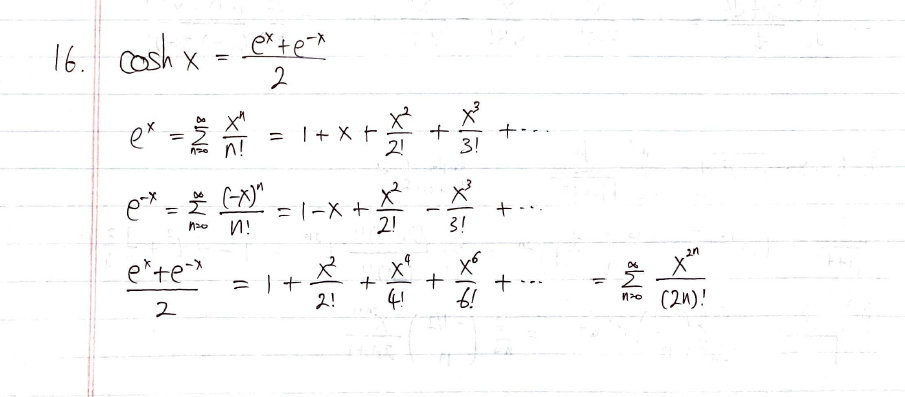 16. cosh x = (e^x + e^-x)/2
e^x = ∑_{n=0}^∞ x^n/n! = 1 + x + x^2/2! + x^3/3! + ...
e^-x = ∑_{n=0}^∞ (-x)^n/n! = 1 - x + x^2/2! - x^3/3! + ...
(e^x + e^-x)/2 = 1 + x^2/2! + x^4/4! + x^6/6! + ... = ∑_{n=0}^∞ x^{2n}/(2n)!